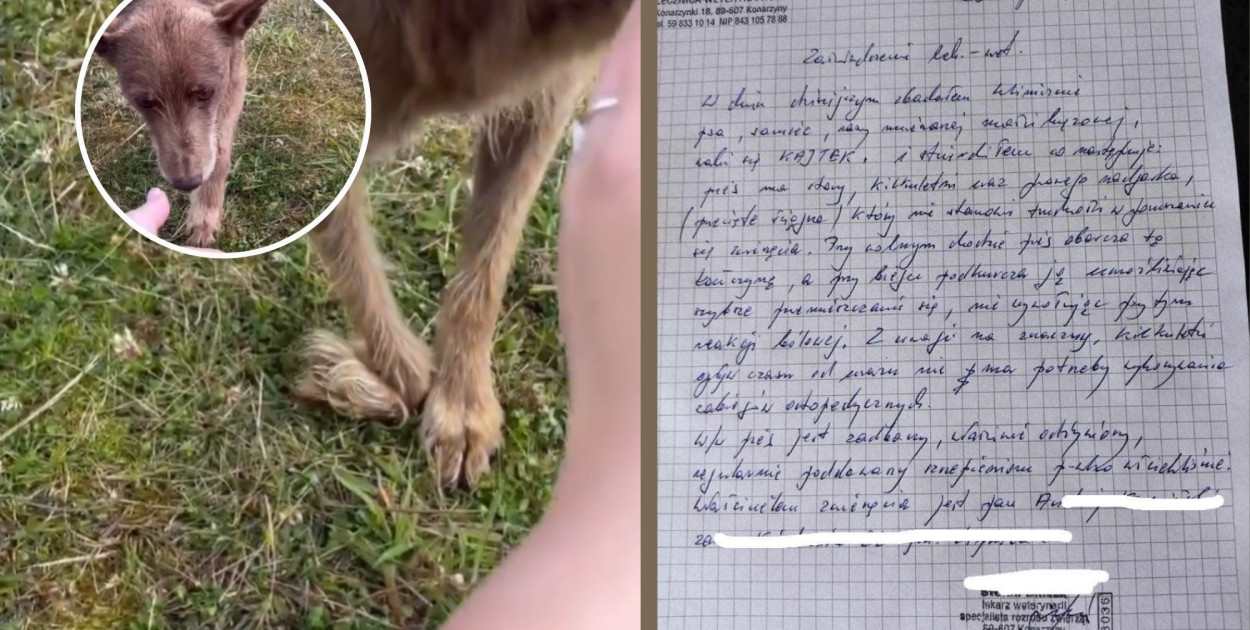 LECZNICA WETERYNARYJNA
Konarzynki 18, 89-607 Konarzyny
tel. 59 833 10 14 NIP 843 105 78 88
Zaświadczenie lek.-wet.
W dniu dzisiejszym zbadałem klinicznie
psa, samiec, rasy mieszanej maści beżowej,
wabi się KAJTEK. i stwierdziłem co następuje:
pies ma stary, kilkuletni uraz prawego nadgarstka,
który nie stanowi trudności w poruszaniu
się zwierzęcia. Przy wolnym chodzie pies obarcza tę
kończynę, a przy biegu podkurcza ją umożliwiając
szybsze przemieszczanie się, nie wywołując przy tym
reakcji bólowej. Z uwagi na znaczny, kilkuletni
upływ czasu od urazu nie ma potrzeby wykonywania
zabiegów ortopedycznych.
W/w pies jest zadbany, właściwie odżywiony,
regularnie poddawany szczepieniom p-ko wściekliźnie.
Właścicielem zwierzęcia jest pan
lekarz weterynarii
specjalista rozrodu zwierząt
89-607 Konarzyny